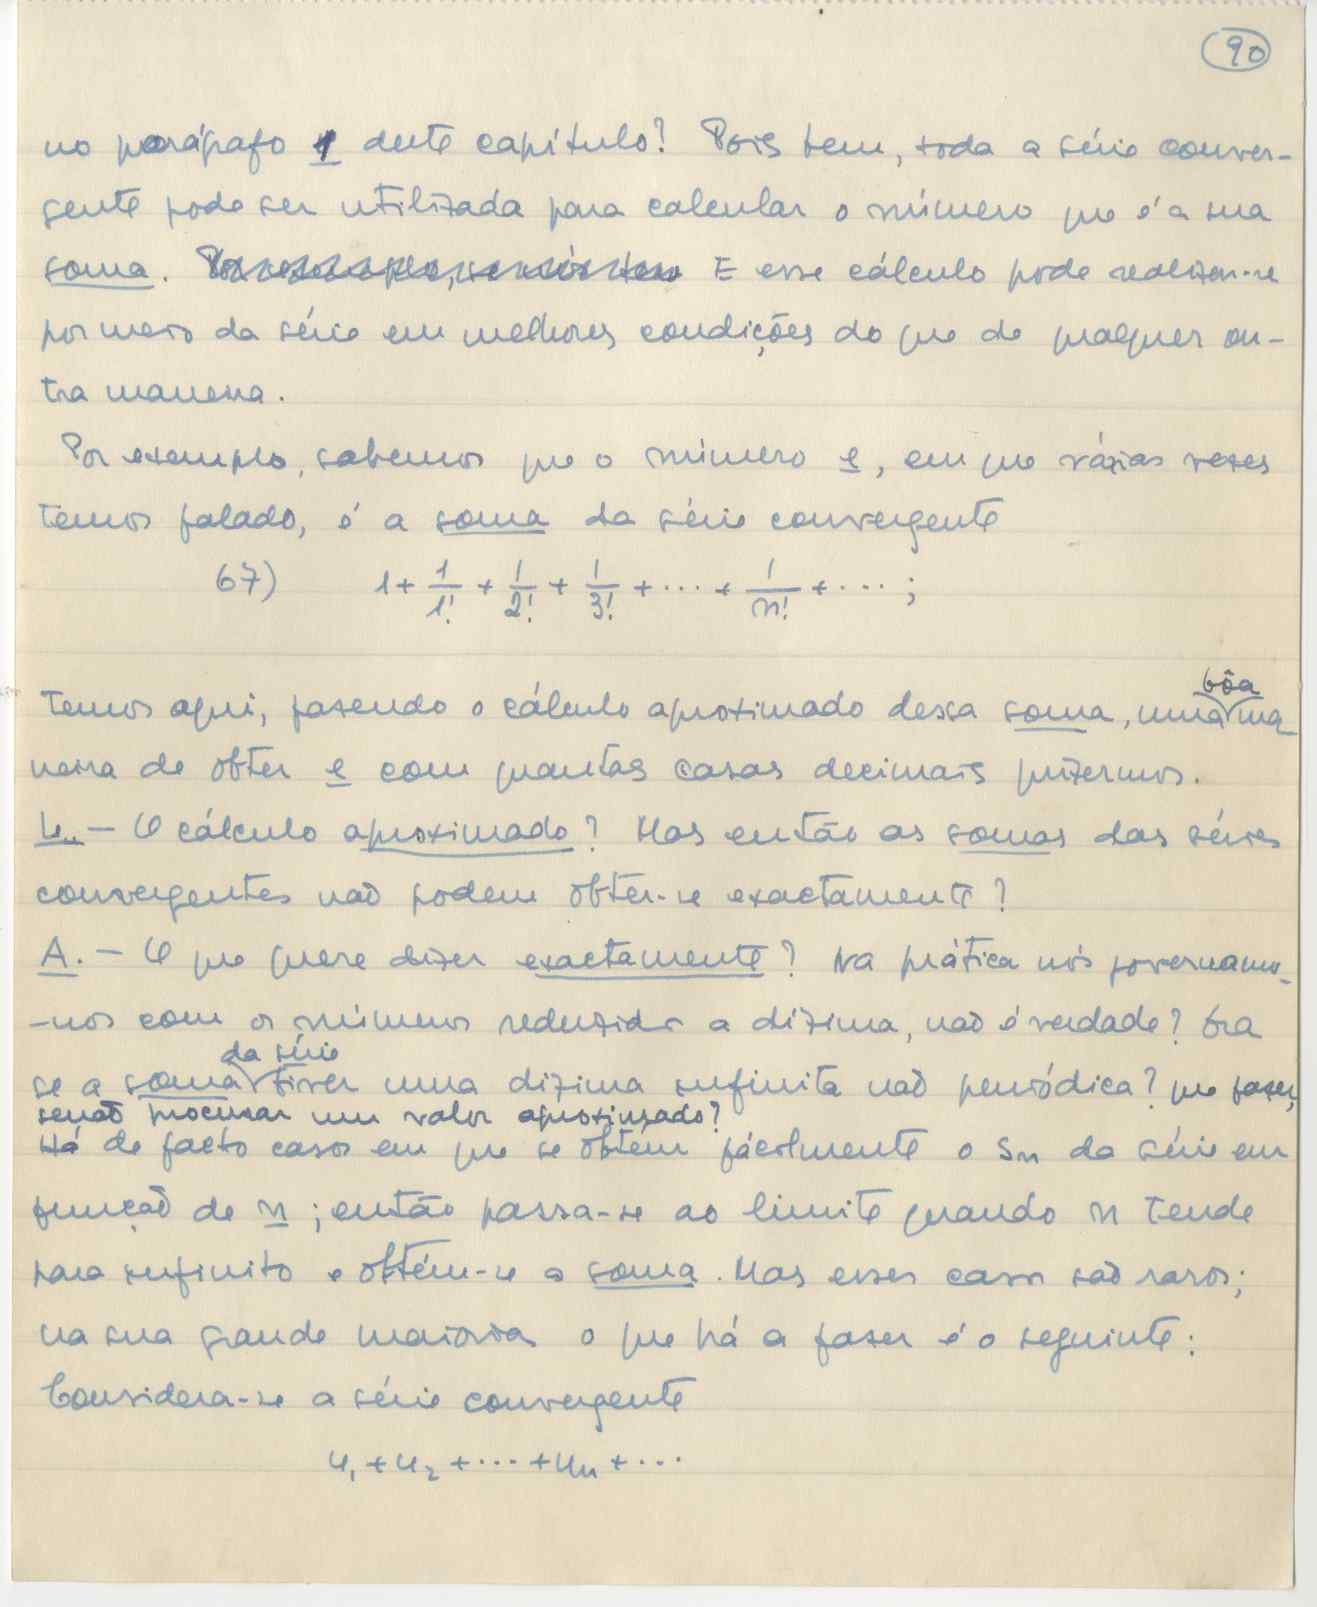 90
no parágrafo 1 deste capítulo? Pois bem, toda a série conver-
gente pode ser utilizada para calcular o número que é a sua
soma. E esse cálculo pode realizar-se
por meio da série em melhores condições do que de qualquer ou-
tra maneira.
Por exemplo, sabemos que o número e, em que várias vezes
temos falado, é a soma da série convergente
67) 1 + 1/1! + 1/2! + 1/3! + ··· + 1/n! + ··· ;
bôa
temos aqui, fazendo o cálculo aproximado dessa soma, uma ma
neira de obter e com quantas casas decimais quizermos.
L. — O cálculo aproximado? Mas então as somas das séries
convergentes não podem obter-se exactamente?
A. — O que quere dizer exactamente? Na prática nós governamo-
-nos com os números reduzidos a dízima, não é verdade? Ora
da série
se a soma tiver uma dízima infinita não periódica? que fazer,
senão procurar um valor aproximado?
Há de facto casos em que se obtém fácilmente o Sn da série em
função de n ; então passa-se ao limite quando n tende
para infinito e obtém-se a soma. Mas esses casos são raros;
na sua grande maioria o que há a fazer é o seguinte:
Considera-se a série convergente
u₁ + u₂ + ··· + uₙ + ···